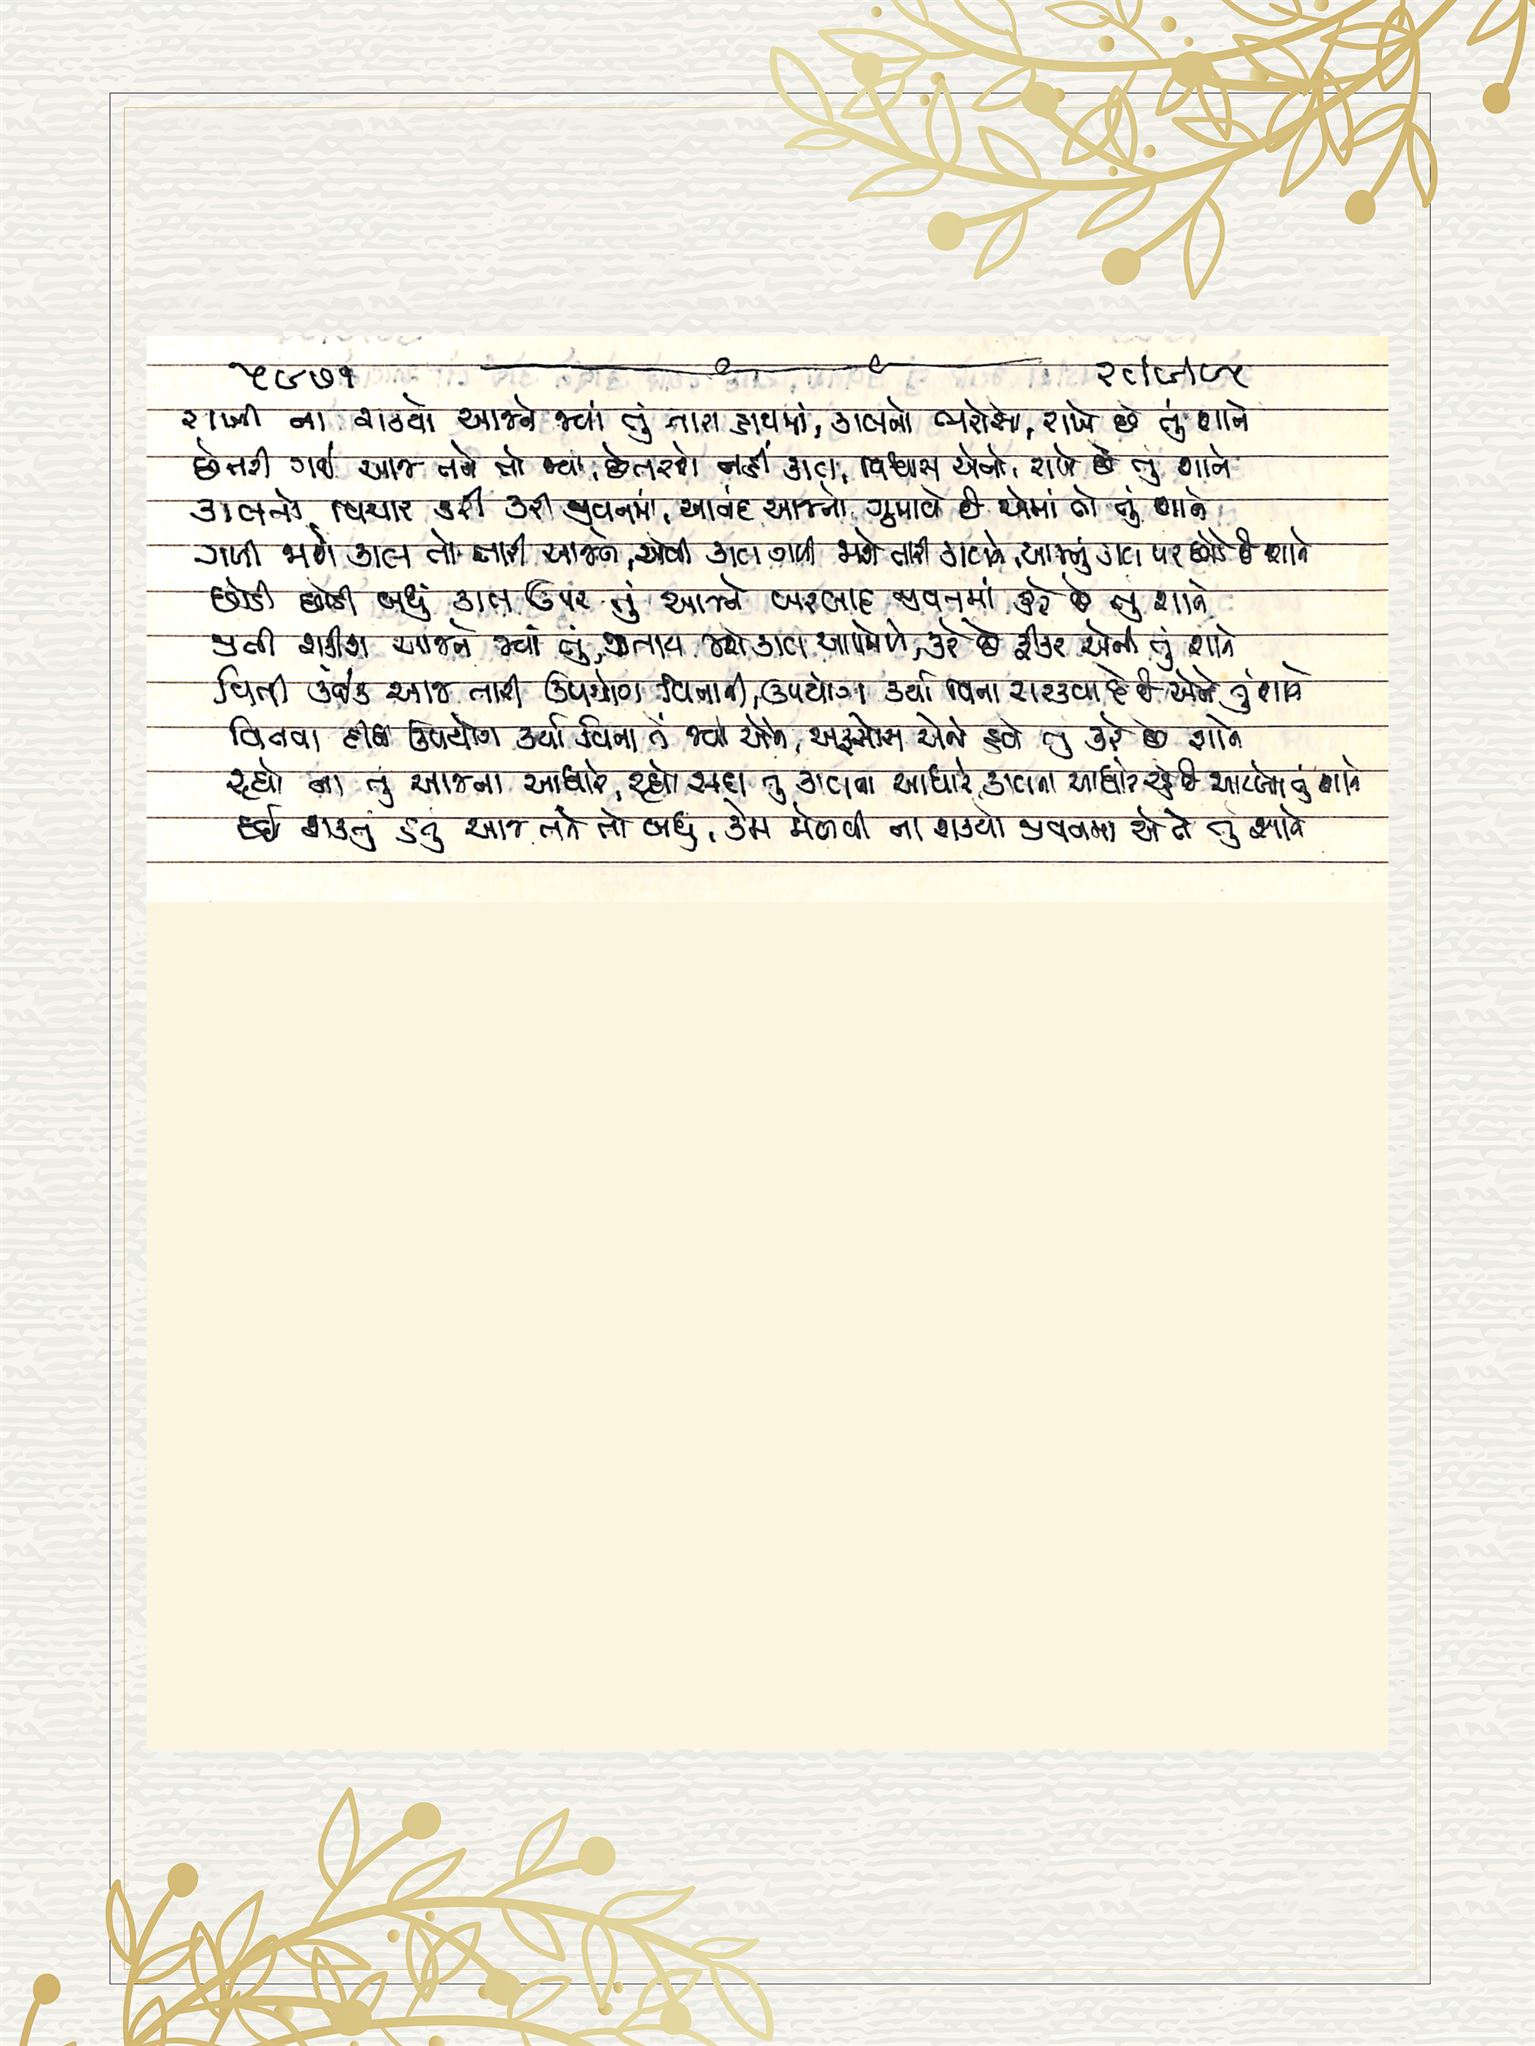 ૫૯૭૧ ૨૮/૯/૯૫
રાખી ના શક્યો આજને જ્યાં તું તારા હાથમાં, કાલનો ભરોસો, રાખે છે તું શાને
છેતરી ગઈ આજ તને તો જ્યાં, છેતરશે નહીં કાલ, વિશ્વાસ એનો, રાખે છે તું શાને
કાલનો વિચાર કરી કરી જીવનમાં, આનંદ આજનો ગુમાવે છે એમાં તો તું શાને
ગળી ગઈ કાલ તો તારી આજને, એવી કાલ ગળી જાશે તારી કાલને, આજનું કાલ પર છોડે છે શાને
છોડી છોડી બધું કાલ ઉપર તું આજને બરબાદ જીવનમાં કરે છે તું શાને
જીતી શકીશ આજને જ્યાં તું, જીતાય જાશે કાલ આપમેળે, કરે છે ફીકર એની તું શાને
વિતી કંઈક આજ તારી ઉપયોગ વિનાની, ઉપયોગ કર્યા વિના સરકવા દે છે એને તું શાને
વિતવા દીધી ઉપયોગ કર્યા વિના તેં જ્યાં એને, અફસોસ એનો હવે તું કરે છે શાને
રહ્યો ના તું આજના આધારે, રહ્યો સદા તું કાલના આધારે, કાલના આધારે રહે છે આટલો તું શાને
દઈ શકતું હતું આજ તને તો બધું, કેમ મેળવી ના શક્યો જીવનમાં એને તું શાને